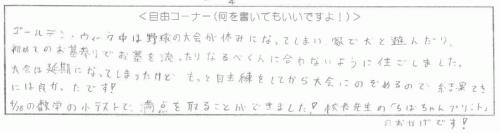 4
<自由コーナー(何を書いてもいいですよ!)>
ゴールデン・ウィーク中は野球の大会が休みになってしまい、家で犬と遊んだり、
初めてのお墓参りでお墓を洗ったりなるべく人に会わないように过ごしました。
大会は延期になってしまったけど、もっと自主練をしてから大会にのぞめるので、結果てき
には良かったです!
4/28の数学の小テストで、満点を取ることができました!校長先生の「ちばちゃんプリント」
のおかげです!